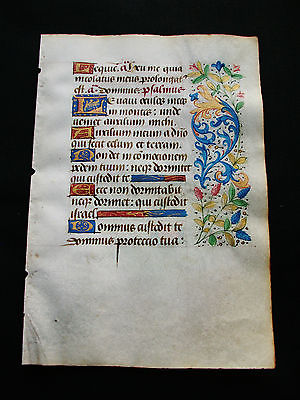 Requiē. aṉ Heu me quia
incolatus meus prolongat⁹
est. a. Dominus. psalmus
Leuaui oculos meos
in montes: unde
ueniet auxilium michi.
Auxilium meum a dño
qui fecit celum et terram.
Non det in cōmocionem
pedem tuum: neqz dormitet
qui custodit te.
Ecce non dormitabit
neqz dormiet: qui custodit
israel.
Dominus custodit te
dominus protectio tua: